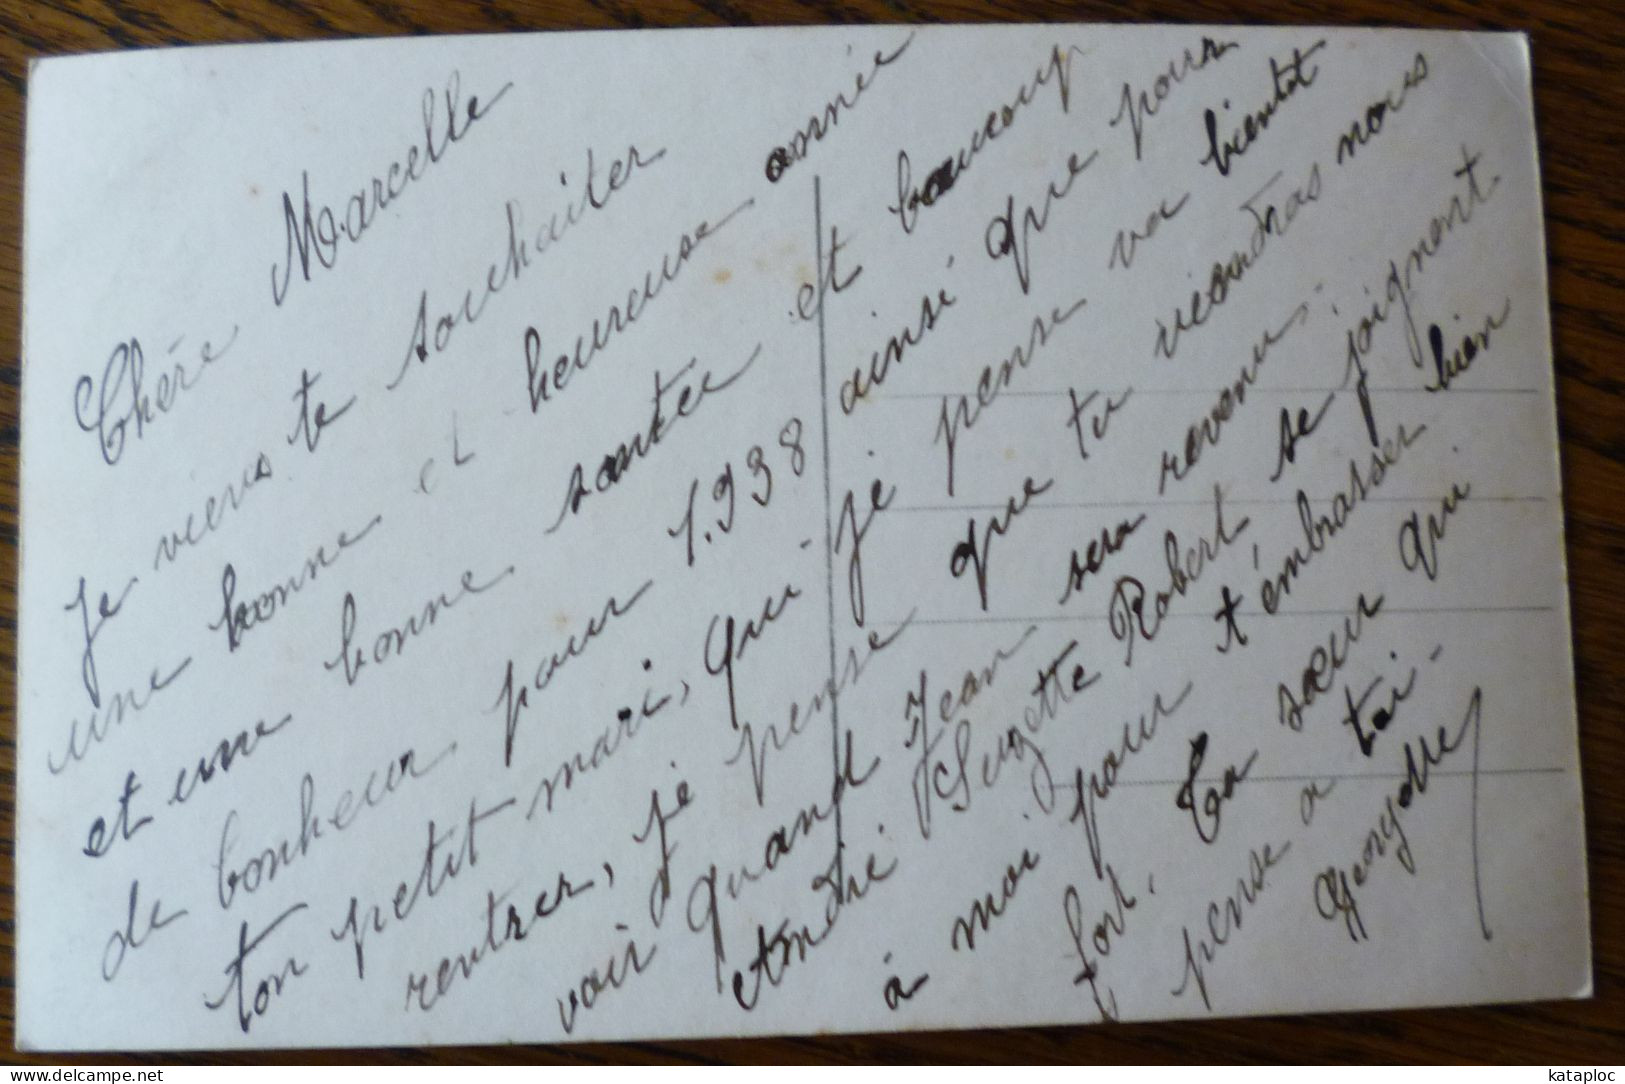 Chère Marcelle
Je viens te souhaiter
une bonne et heureuse année
et une bonne santée et beaucoup
de bonheur pour 1.938 ainsi que pour
ton petit mari, qui je pense va bientot
rentrer, je pense que tu viendras nous
voir quand Jean sera revenu.
André Suzette Robert, se joignent
à moi pour t'émbrasser bien
fort. Ta sœur qui
pense a toi-
Georgette
kataploc